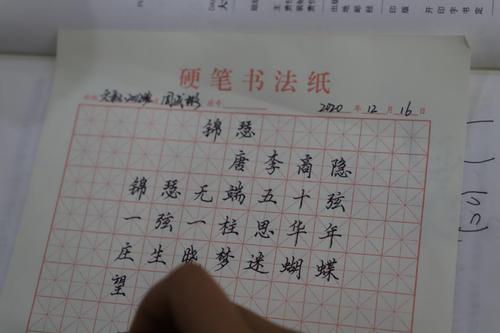 硬笔书法纸
2020年12月16日
锦瑟
唐李商隐
锦瑟无端五十弦
一弦一柱思华年
庄生晓梦迷蝴蝶
望